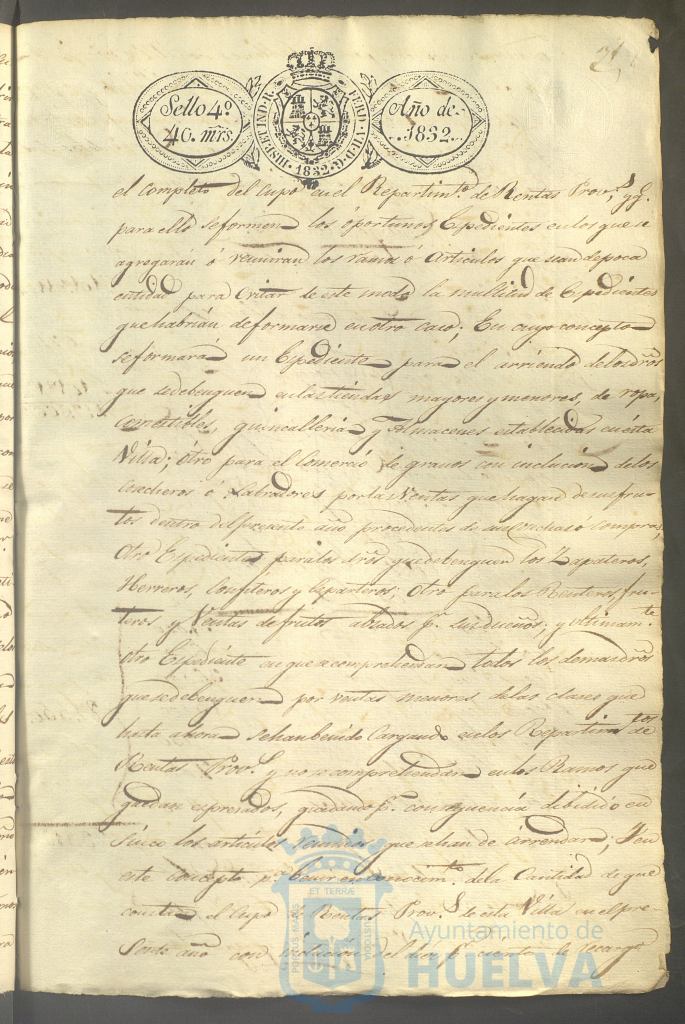 Sello 4º
40. mrs.
HISP. ET IND. R.
FERD. VII. D. G.
1832
Año de
1832.
el completo del cupo en el Repartimto. de Rentas Provs. y qe.
para ello se formen los oportunos Expedientes en los que se
agregarán ó reuniran los ramos ó Articulos que sean de poca
entidad para evitar de este modo la multitud de Expedientes
que habrian de formarse en otro caso; En cuyo concepto
se formará un Expediente para el arriendo de los dros
que se debenguen en las tiendas mayores y menores, de ropa,
comestibles, quincalleria y Almacenes establecidos en esta
Villa; ótro para el Comercio de granos con inclucion de los
Cosecheros ó Labradores por las Ventas que hagan de sus fru-
tos dentro del presente año procedentes de sus Cosechas ó compras,
Otro Expediente para los dros que debenguen los Zapateros,
Herreros, Confiteros y Esparteros; Otro para los Renteros, fru-
teros y Ventas de frutos alzados pr. sus dueños; y ultimamte.
otro Expediente en que se comprehendan todos los demas dros
que se debenguen por ventas menores de las clases que
hasta ahora se han benido Cargando en los Repartimtos de
Rentas Provs. y no se comprehendan en los Ramos que
quedan espresados, quedando pr. consequencia dibidido en
sinco los artículos ramos que se han de arrendar; Y en
este concepto pa. benir en conocimto. de la Cantidad de que
consta el Cupo de Rentas Provs. de esta Villa en el pre-
sente año con inclucion del diez pr. ciento de recargo
PORTUS MARIS
ET TERRÆ
CUSTODIA
Ayuntamiento de
HUELVA